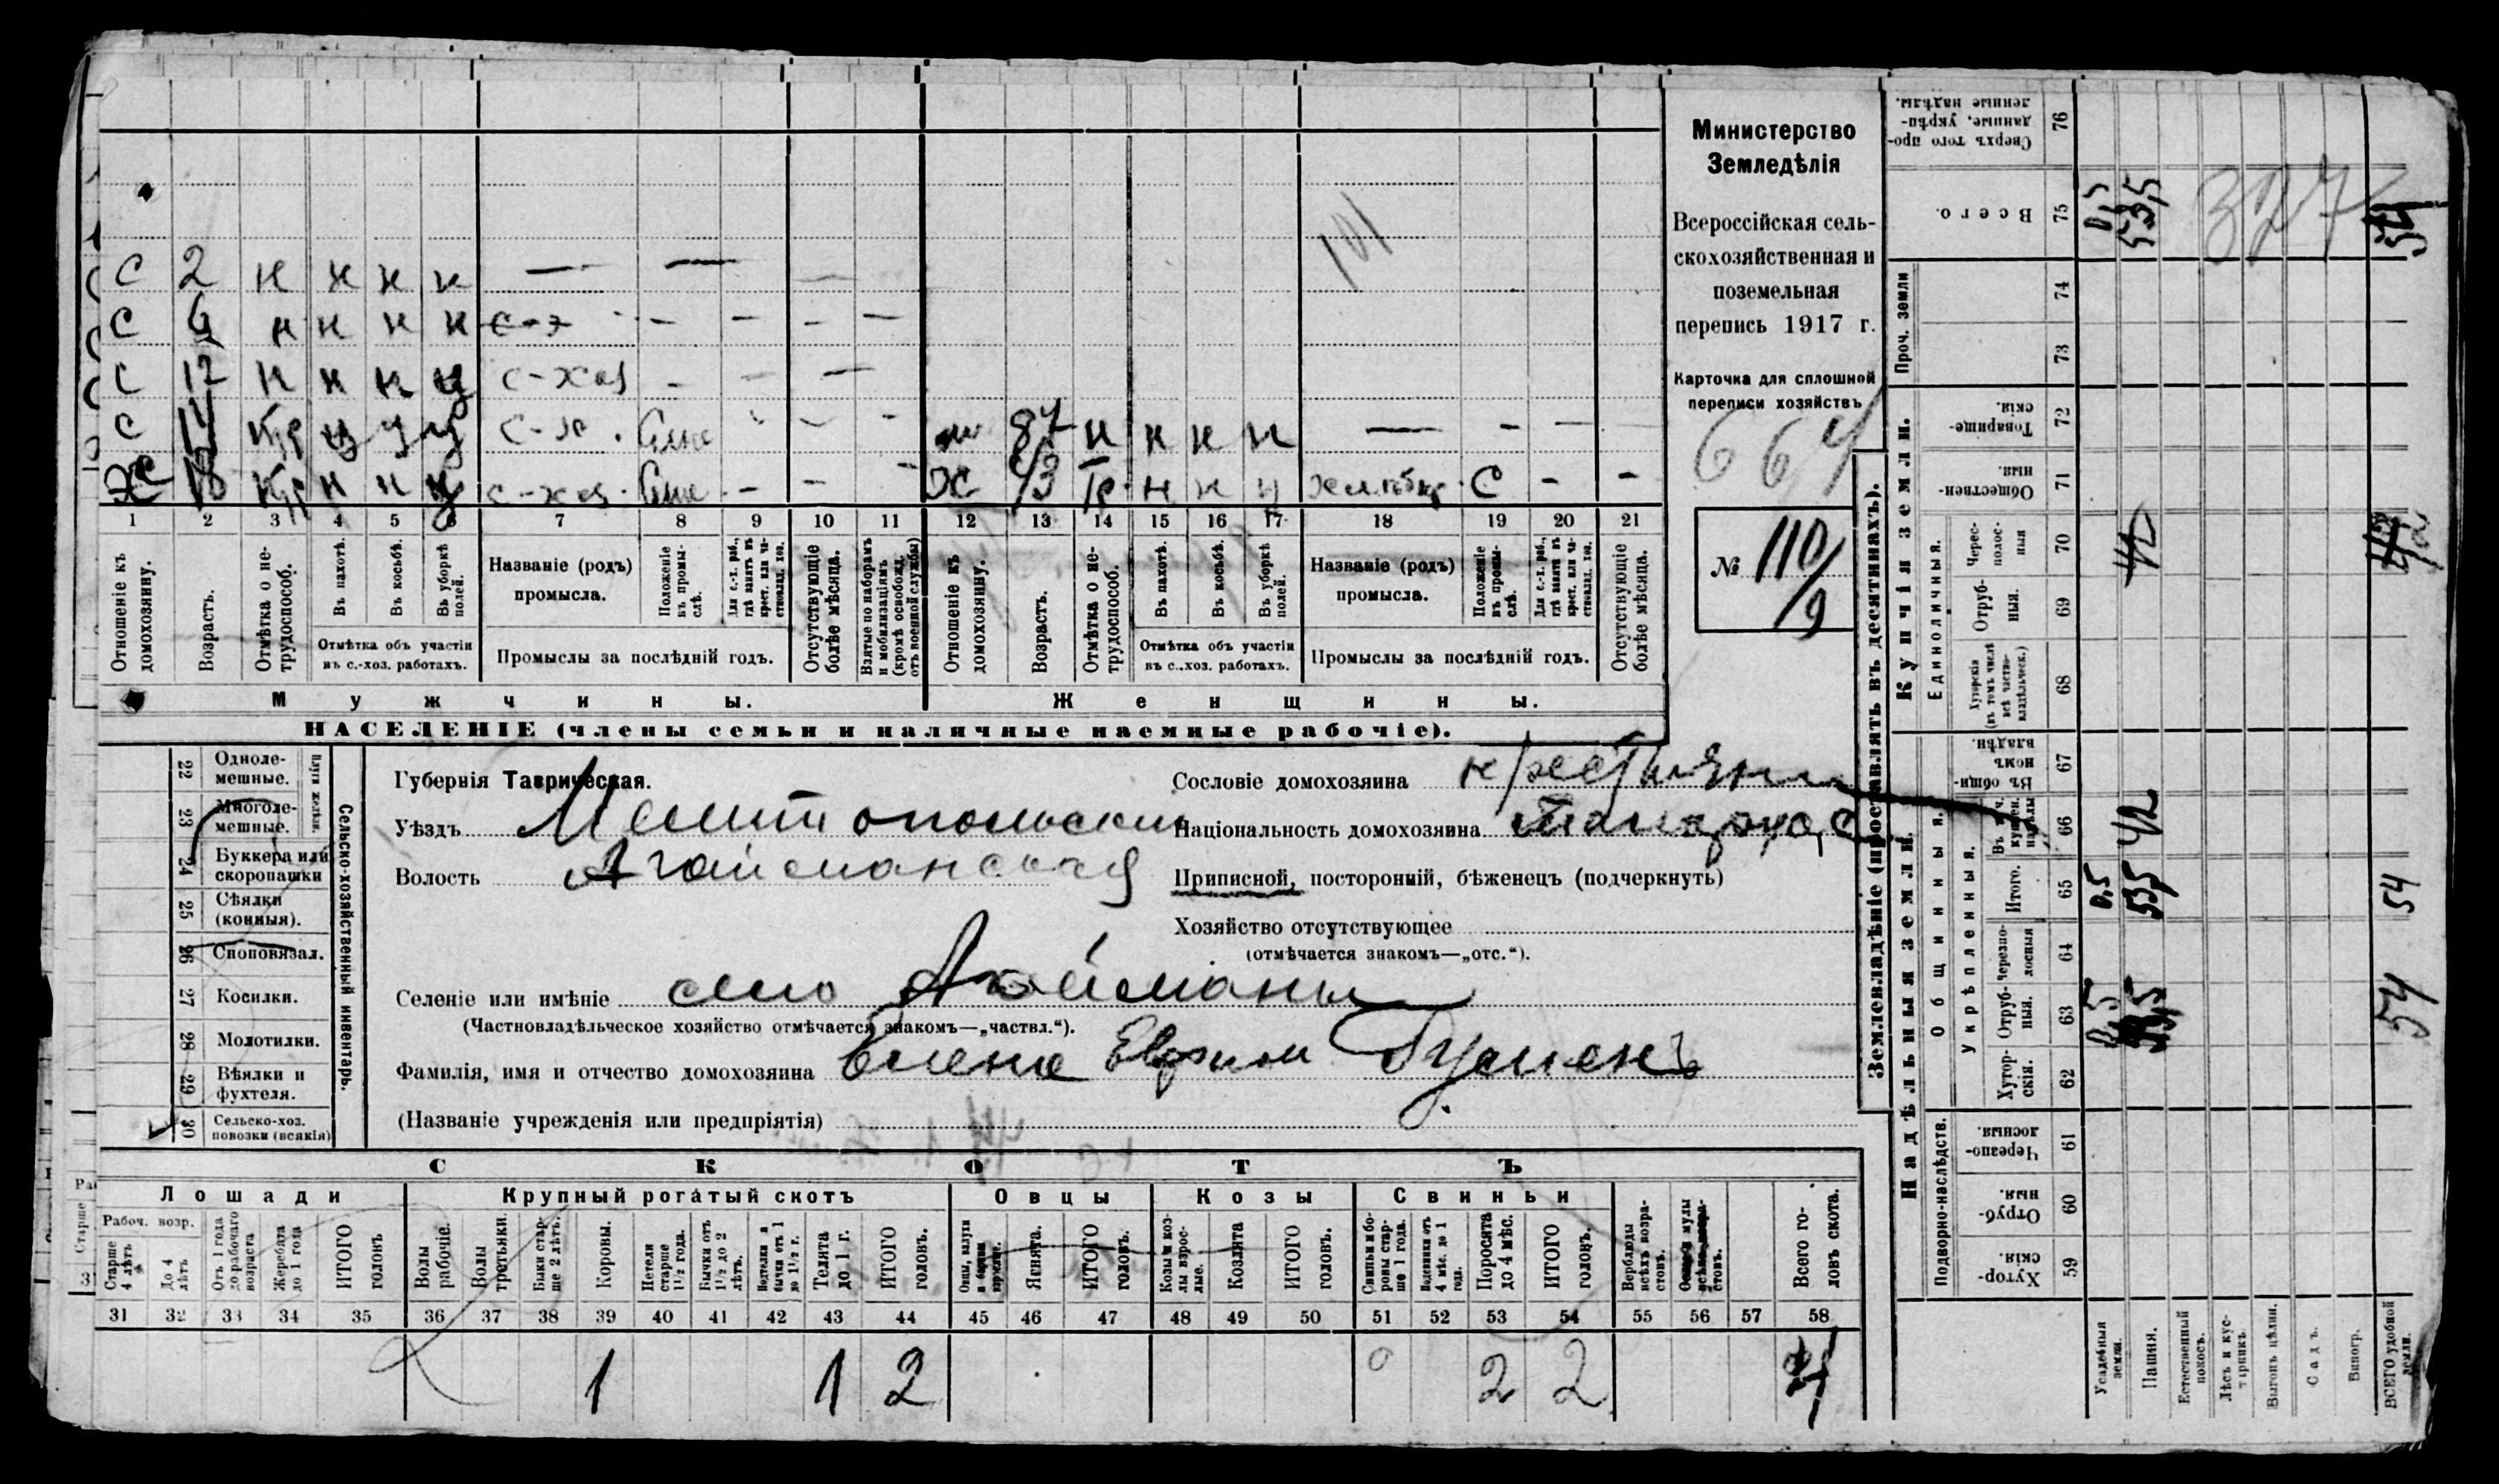 Министерство
Земледѣлія
Всероссійская сель-
скохозяйственная и
поземельная
перепись 1917 г.
Карточка для сплошной
переписи хозяйствъ
664
№ 110/9
101
С 2 н н н н — — —
С н н н н — — — —
С 12 н н н у с-хоз — — —
С у у у с-х.
с-хоз.
87 н н н н — — —
Ж 43 н н С — —
1 2 3 4 5 6 7 8 9 10 11 12 13 14 15 16 17 18 19 20 21
Отношеніе къ домохозяину.
Возрастъ.
Отмѣтка о не-трудоспособ.
Въ пахотѣ.
Въ косьбѣ.
Въ уборкѣ полей.
Отмѣтка объ участіи
въ с.-хоз. работахъ.
Названіе (родъ)
промысла.
Положеніе въ промы-слѣ.
Для с.-х. раб., гдѣ занятъ въ крест. или ча-стновлад. хоз.
Промыслы за послѣдній годъ.
Отсутствующіе болѣе мѣсяца.
Взятые по наборамъ и мобилизаціямъ (кромѣ освобожд. отъ военной службы)
Отношеніе къ домохозяину.
Возрастъ.
Отмѣтка о не-трудоспособ.
Въ пахотѣ.
Въ косьбѣ.
Въ уборкѣ полей.
Отмѣтка объ участіи
въ с.-хоз. работахъ.
Названіе (родъ)
промысла.
Положеніе въ промы-слѣ.
Для с.-х. раб., гдѣ занятъ въ крест. или ча-стновлад. хоз.
Промыслы за послѣдній годъ.
Отсутствующіе болѣе мѣсяца.
Мужчины.
Женщины.
НАСЕЛЕНІЕ (члены семьи и наличные наемные рабочіе).
Сельско-хозяйственный инвентарь.
Плуги желѣзн.
22 Одноле-мешные.
23 Многоле-мешные.
24 Буккера или скоропашки
25 Сѣялки (конныя).
26 Сноповязал.
27 Косилки.
28 Молотилки.
29 Вѣялки и фухтеля.
30 Сельско-хоз. повозки (всякія)
Губернія Таврическая.
Уѣздъ Мелитопольскій
Волость Агайманская
Сословіе домохозяина крестьяни
Національность домохозяина
Приписной, посторонній, бѣженецъ (подчеркнуть)
Хозяйство отсутствующее
(отмѣчается знакомъ—„отс.“).
Селеніе или имѣніе село Агайманы
(Частновладѣльческое хозяйство отмѣчается знакомъ—„частвл.“).
Фамилія, имя и отчество домохозяина Елена Ефрим
(Названіе учрежденія или предпріятія)
СКОТЪ
Лошади
Крупный рогатый скотъ
Овцы
Козы
Свиньи
Рабоч. возр.
Старше 4 лѣтъ
До 4 лѣтъ
Отъ 1 года до рабочаго возраста
Жеребята до 1 года
ИТОГО головъ
Волы рабочіе.
Волы третьяки.
Быки стар-ше 2 лѣтъ.
Коровы.
Нетели старше 1½ года.
Бычки отъ 1½ до 2 лѣтъ.
Нетели и бычки отъ 1 до 1½ г.
Телята до 1 г.
ИТОГО головъ.
Ягнята.
ИТОГО головъ.
Козы и коз-лы взрос-лые.
Козлята
ИТОГО головъ.
Свиньи и бо-ровы стар-ше 1 года.
Подсвинки отъ 4 мѣс. до 1 года.
Поросята до 4 мѣс.
ИТОГО головъ.
Верблюды всѣхъ возра-стовъ.
Всего го-ловъ скота.
31 32 33 34 35 36 37 38 39 40 41 42 43 44 45 46 47 48 49 50 51 52 53 54 55 56 57 58
1 1 2 0 2 2 4
Землевладѣніе (проставлять въ десятинахъ).
Надѣльныя земли.
Подворно-наслѣдств.
59 Хутор-скія.
60 Отруб-ныя.
61 Черезпо-лосныя.
Общинныя.
Укрѣпленныя.
62 Хутор-скія.
63 Отруб-ныя.
64 Черезпо-лосныя
65 Итого.
66
67 Въ общи-номъ владѣн.
Купчія земли.
Единоличныя.
68 Хуторскія (въ томъ числѣ всѣ частно-владѣльческ.)
69 Отруб-ныя.
70 Черес-полос-ныя
71 Обществен-ныя.
72 Товарище-скія.
Проч. земли
73
74
75 Всего.
76 Сверхъ того про-данные, укрѣп-ленные надѣлы.
Усадебныя земли.
0,5 0,5 0,5
Пашня.
53,5 42 42 53,5
Естественный покосъ.
Лѣсъ и кус-тарникъ.
Выгонъ цѣлин.
Садъ.
Виногр.
ВСЕГО удобной земли.
54 54 54
327